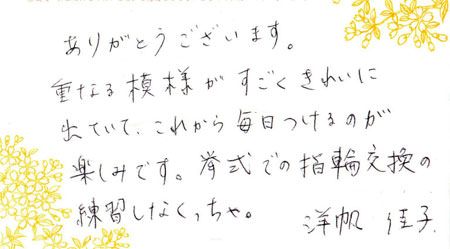 ありがとうございます。
重なる模様がすごくきれいに
出ていて、これから毎日つけるのが
楽しみです。挙式での指輪交換の
練習しなくっちゃ。
洋帆 佳子